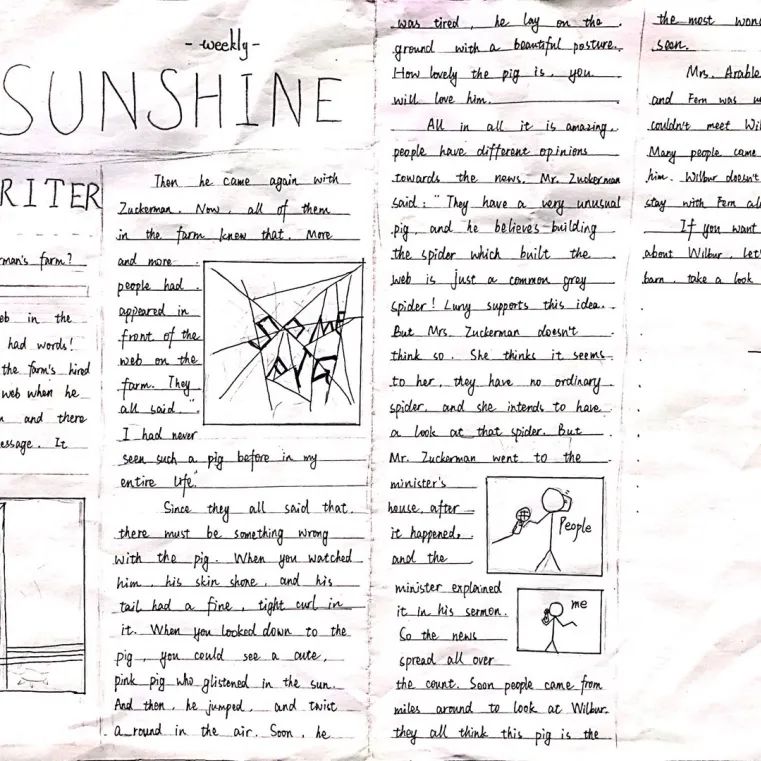 - weekly -
SUNSHINE
RITER
rman's farm?
eb in the
had words!
the farm's hired
web when he
and there
essage. It
Then he came again with
Zuckerman. Now, all of them
in the farm knew that. More
and more
people had
appeared in
front of the
web on the
farm. They
all said. "
I had never
seen such a pig before in my
entire life."
SOME
PIG
Since they all said that.
there must be something wrong
with the pig. When you watched
him, his skin shone, and his
tail had a fine, tight curl in
it. When you looked down to the
pig, you could see a cute,
pink pig who glistened in the sun.
And then, he jumped, and twist
a round in the air. Soon, he
was tired, he lay on the
ground with a beautiful posture.
How lovely the pig is, you
will love him.
All in all it is amazing,
people have different opinions
towards the news, Mr. Zuckerman
said: "They have a very unusual
pig, and he believes building
the spider which built the
web is just a common grey
spider! Lurvy supports this idea.
But Mrs. Zuckerman doesn't
think so. She thinks it seems
to her, they have no ordinary
spider, and she intends to have
a look at that spider. But
Mr. Zuckerman went to the
minister's
house, after
it happened,
and the
People
minister explained
it in his sermon.
So the news
spread all over
me
the count. Soon people came from
miles around to look at Wilbur.
they all think this pig is the
the most won
seen.
Mrs. Arable
and Fern was
couldn't meet Wil
Many people came
him. Wilbur doesn't
stay with Fern al
If you want
about Wilbur, Let'
barn, take a look